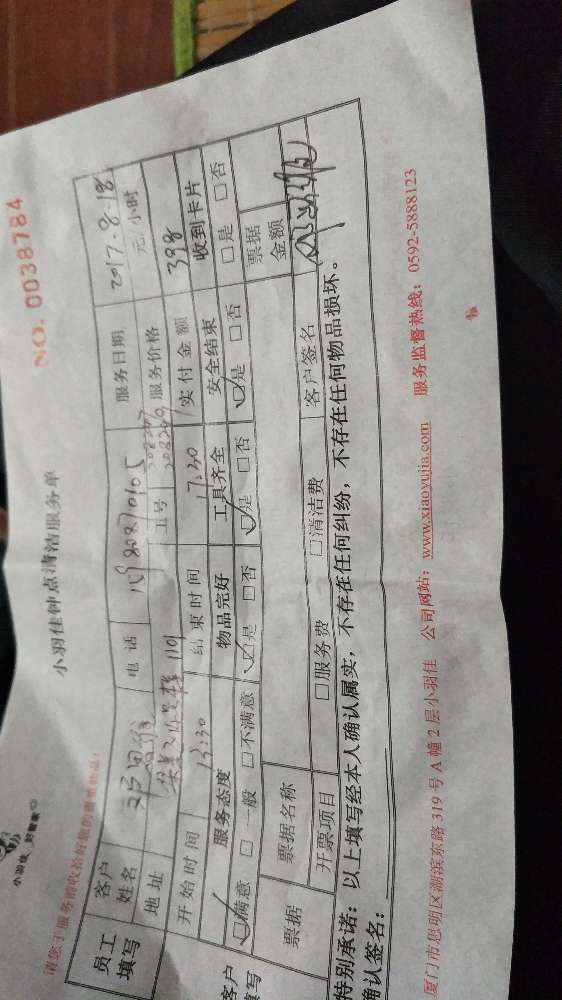 小羽佳 好管家
小羽佳钟点清洁服务单
NO. 0038784
请您于服务前收拾好您的贵重物品!
员工填写
客户姓名
电话
服务日期 2017.8.18
地址 1101
工号
服务价格 元/小时
开始时间 13:30
结束时间 17:30
实付金额 398
客户填写
服务态度 物品完好 工具齐全 安全结束 收到卡片
☑满意 □一般 □不满意 ☑是 □否 ☑是 □否 ☑是 □否 □是 □否
票据
票据名称
票据金额
开票项目 □服务费 □清洁费 客户签名
特别承诺:以上填写经本人确认属实,不存在任何纠纷,不存在任何物品损坏。
确认签名:
厦门市思明区湖滨东路 319 号 A 幢 2 层小羽佳 公司网站:www.xiaoyujia.com 服务监督热线:0592-5888123